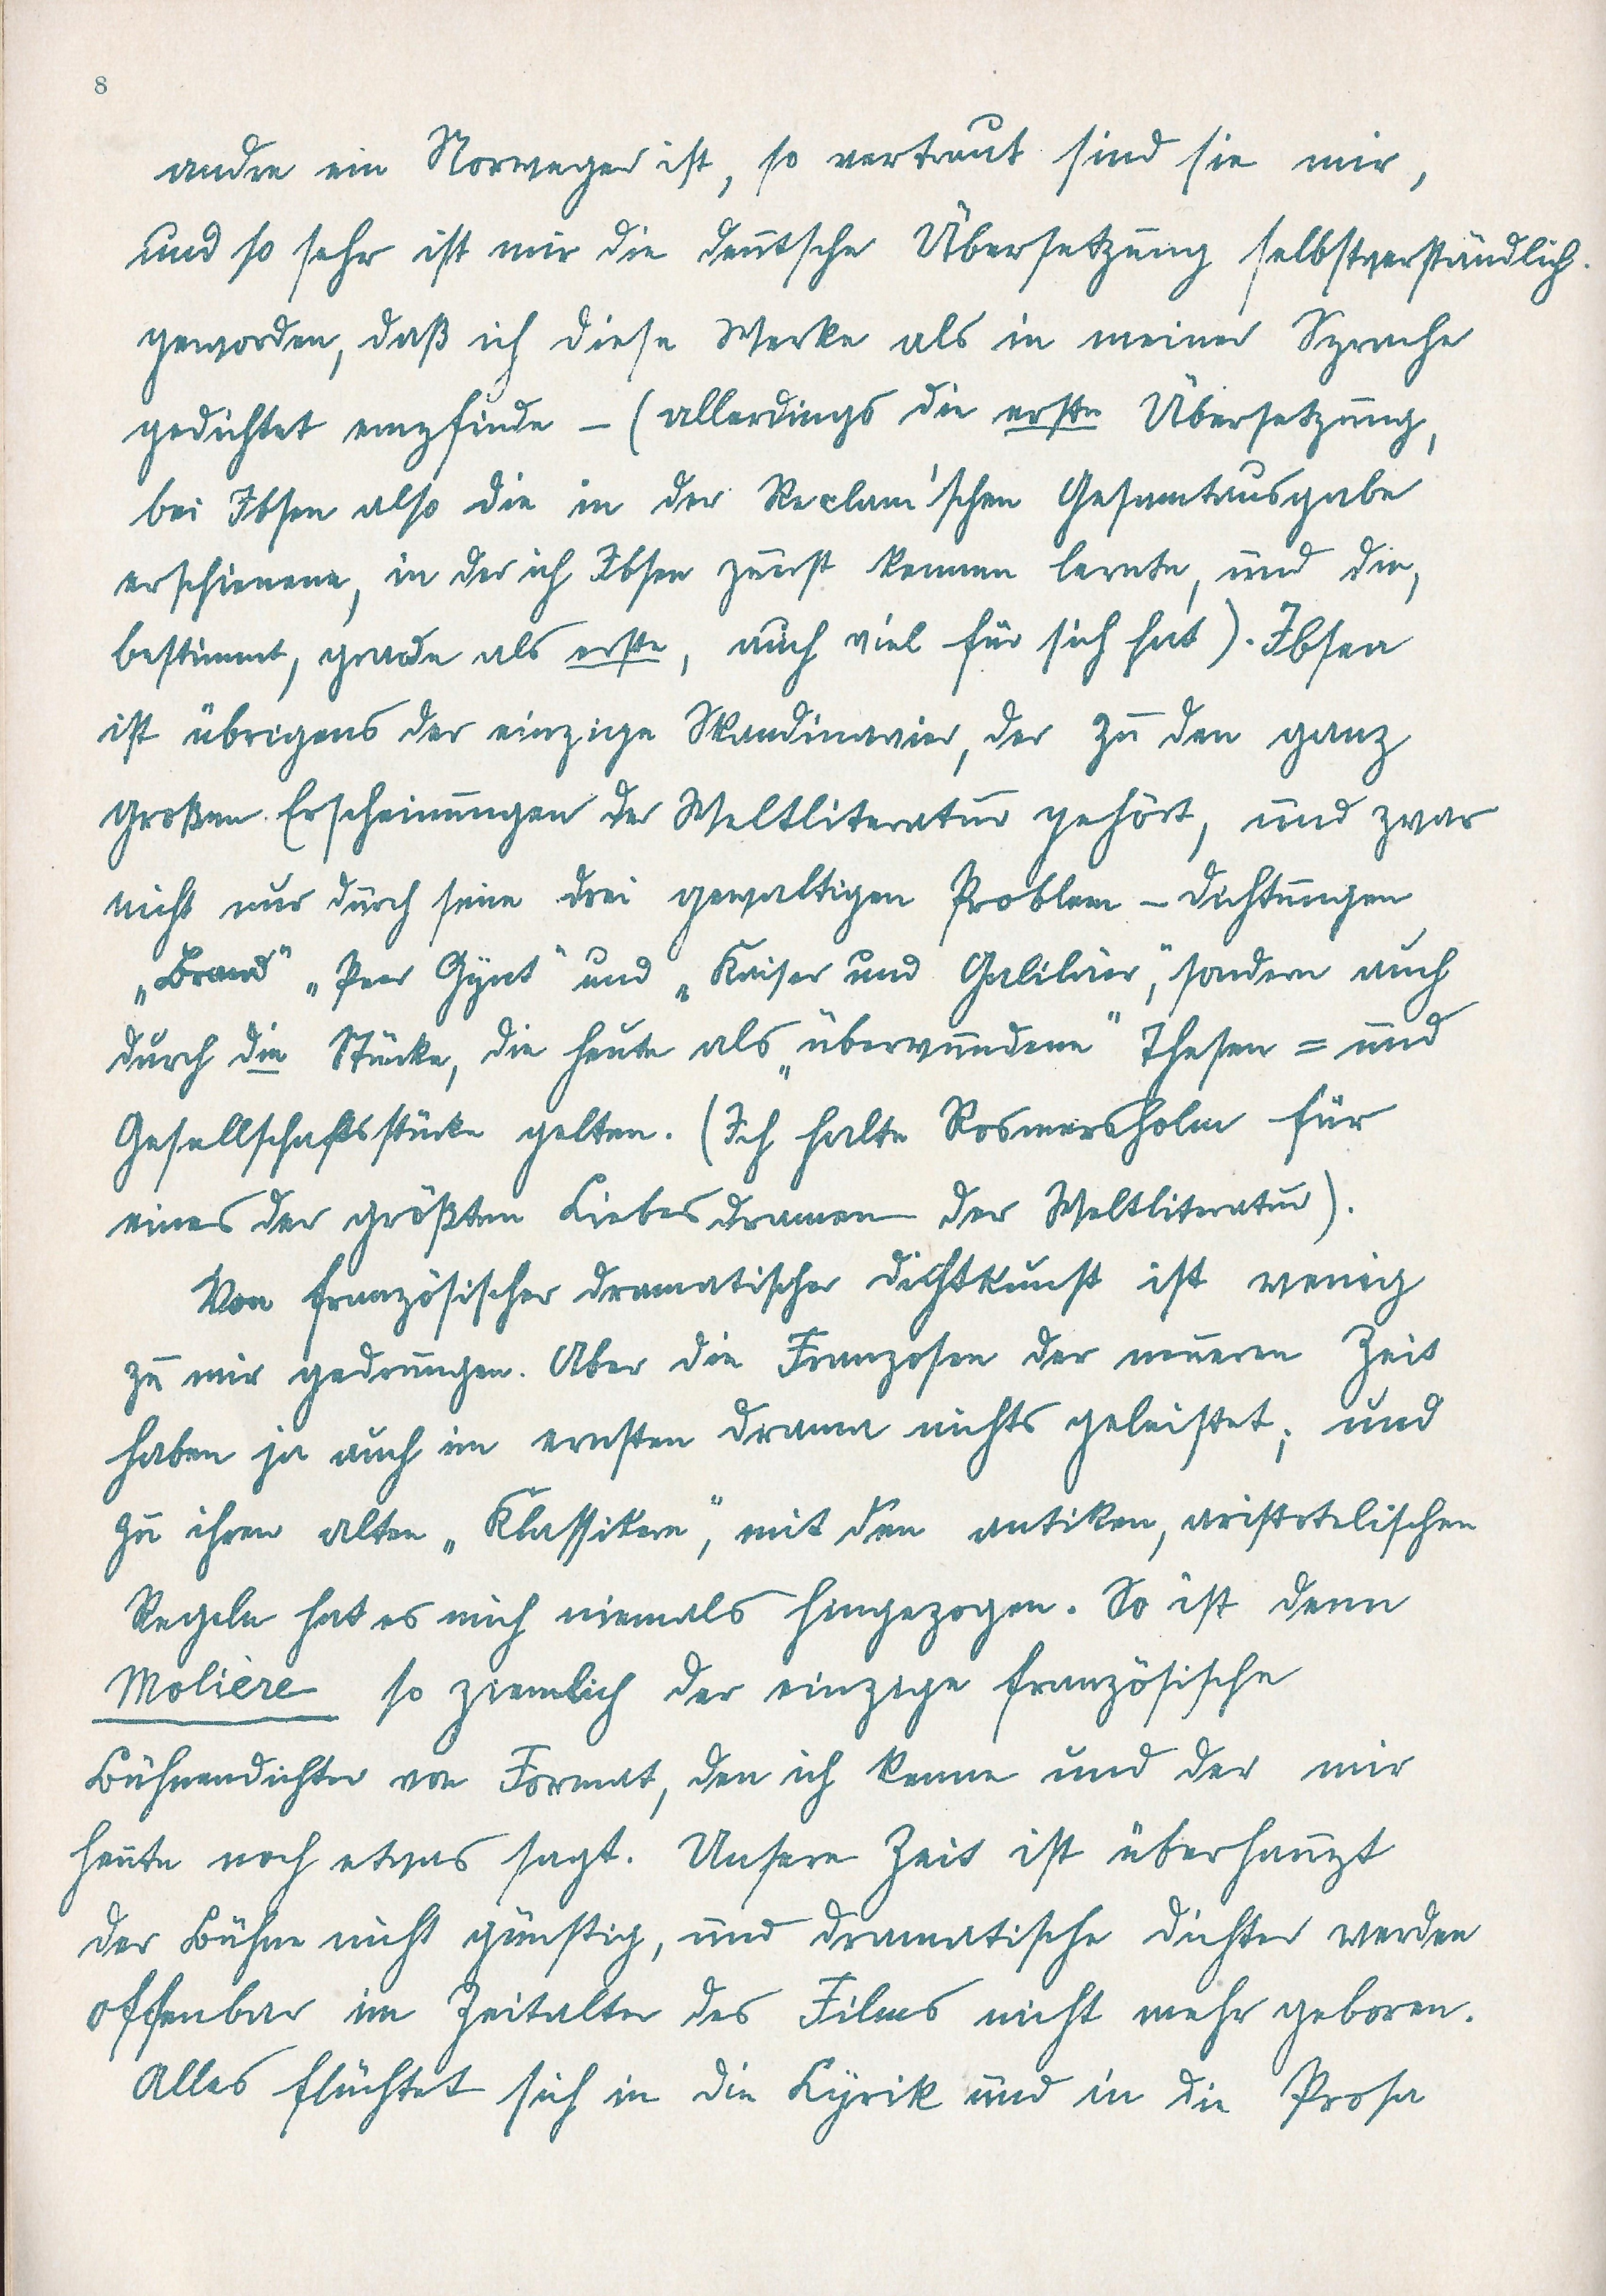 8
andre ein Norweger ist, so vertraut sind sie mir,
und so sehr ist mir die deutsche Übersetzung selbstverständlich
geworden, daß ich diese Werke als in meiner Sprache
gedichtet empfinde – (allerdings die erste Übersetzung,
bei Ibsen also die in der Reclam'schen Gesamtausgabe
erschienene, in der ich Ibsen zuerst kennen lernte, und die,
bestimmt, grade als erste, auch viel für sich hat). Ibsen
ist übrigens der einzige Skandinavier, der zu den ganz
großen Erscheinungen der Weltliteratur gehört, und zwar
nicht nur durch seine drei gewaltigen Problem – Dichtungen
„Brand" „Peer Gynt" und „Kaiser und Galiläer", sondern auch
durch die Stücke, die heute als „überwundene" Thesen = und
Gesellschaftsstücke gelten. (Ich halte Rosmersholm für
eines der größten Liebesdramen der Weltliteratur).
Von französischer dramatischer Dichtkunst ist wenig
zu mir gedrungen. Aber die Franzosen der neueren Zeit
haben ja auch im ernsten Drama nichts geleistet; und
zu ihren alten „Klassikern", mit den antiken, aristotelischen
Regeln hat es mich niemals hingezogen. So ist denn
Molière so ziemlich der einzige französische
Bühnendichter von Format, den ich kenne und der mir
heute noch etwas sagt. Unsere Zeit ist überhaupt
der Bühne nicht günstig, und dramatische Dichter werden
offenbar im Zeitalter des Films nicht mehr geboren.
Alles flüchtet sich in die Lyrik und in die Prosa